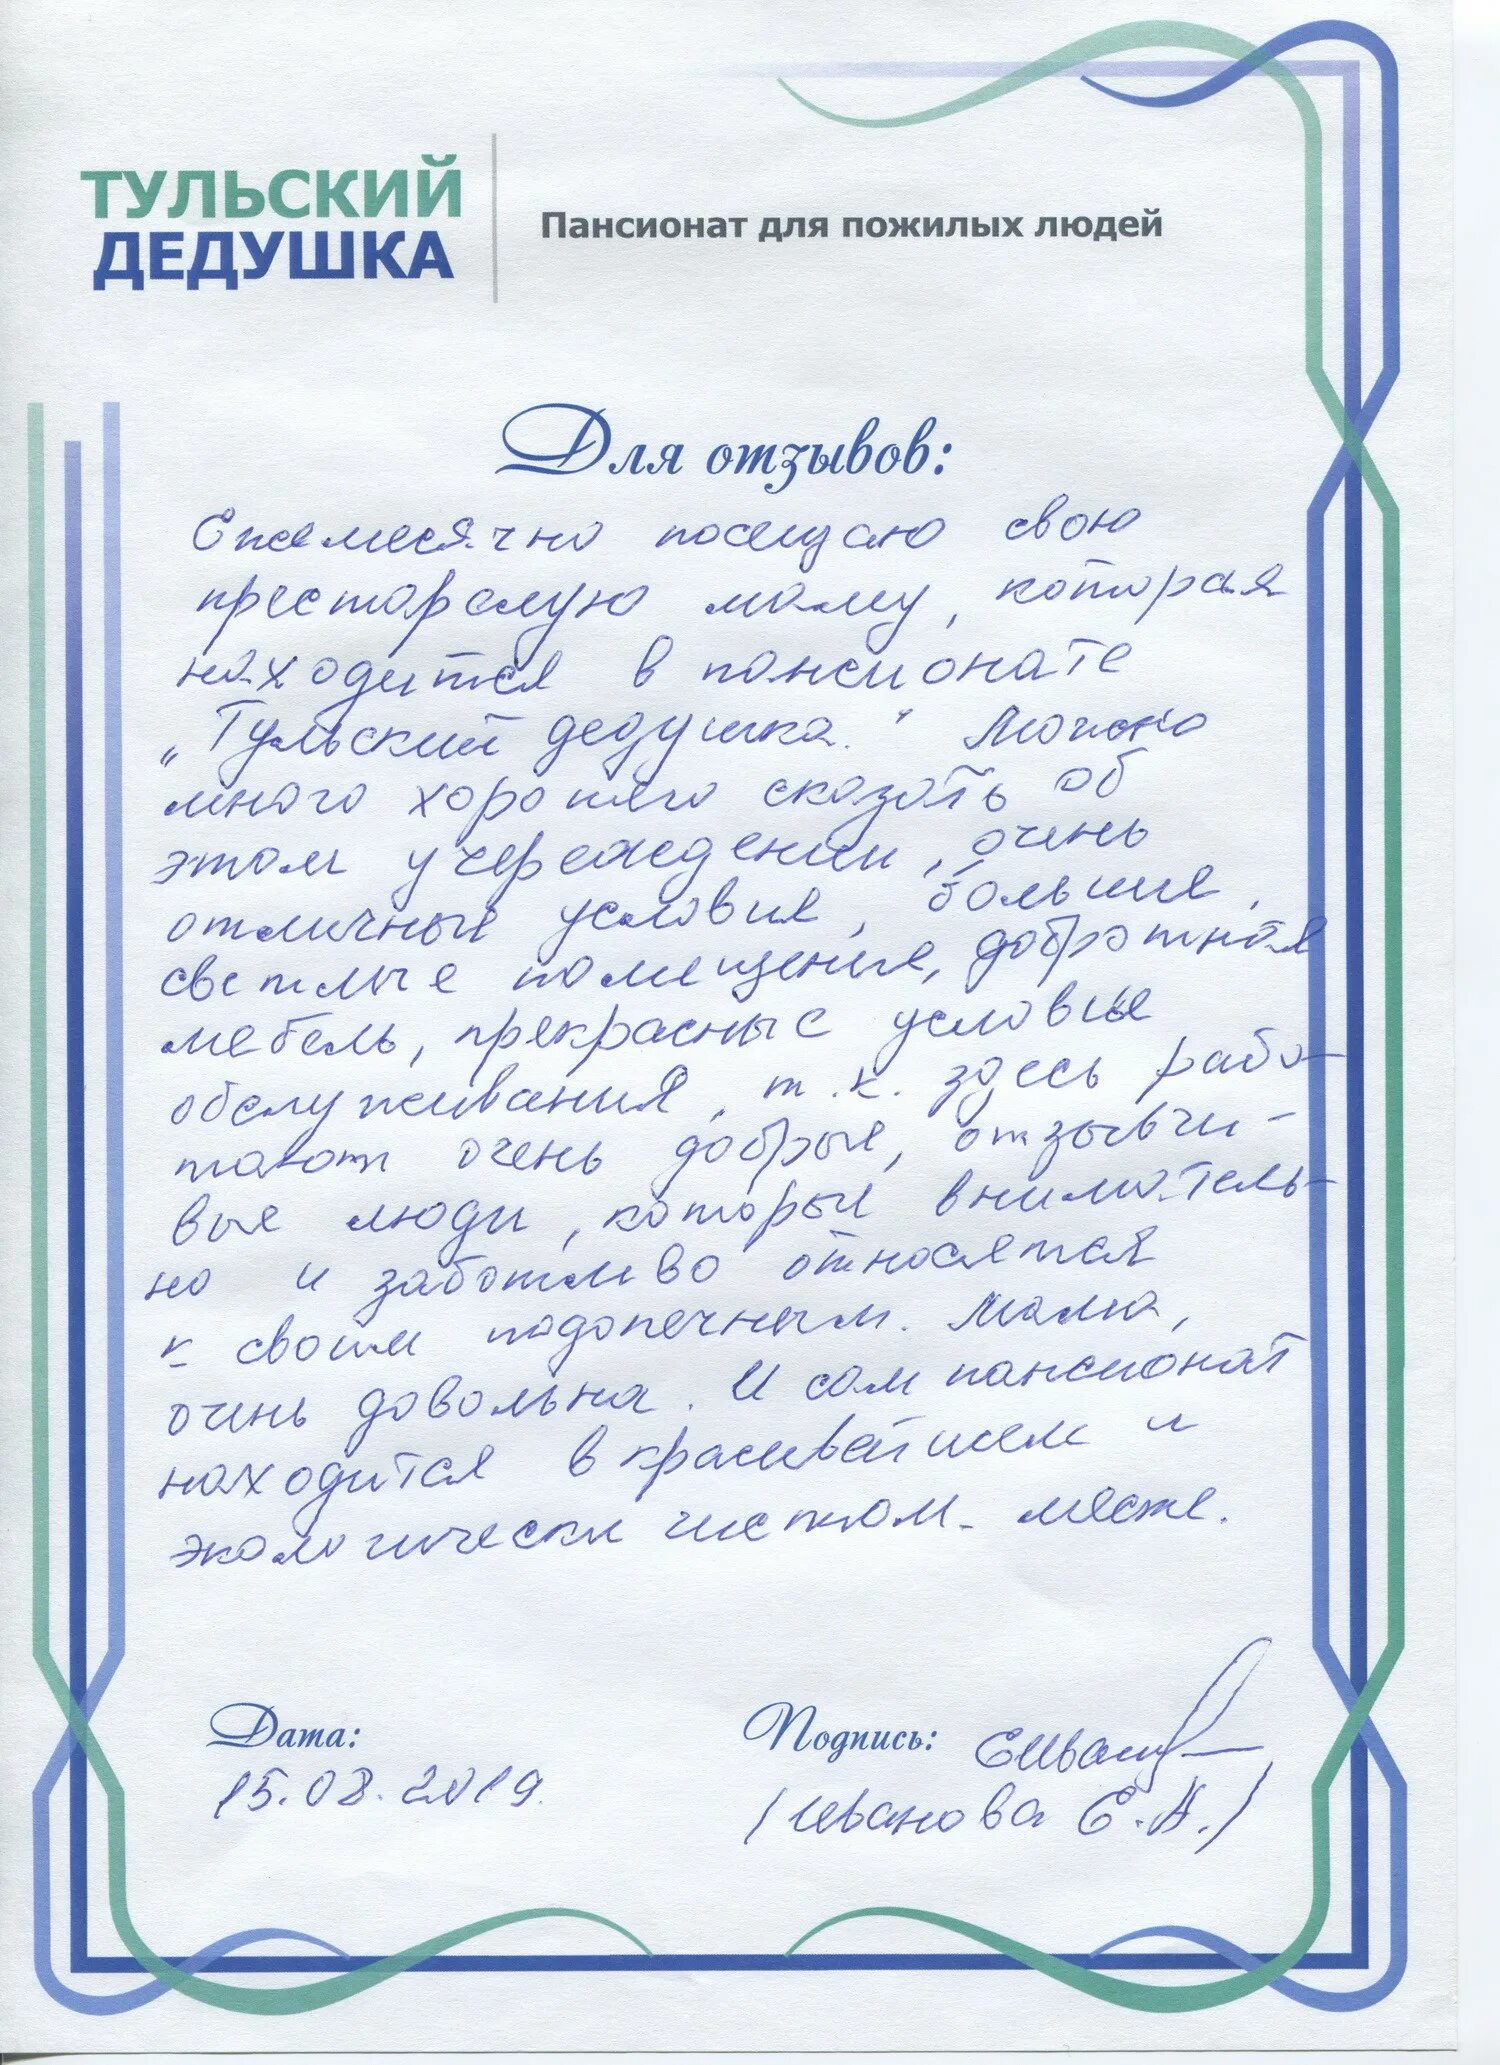 ТУЛЬСКИЙ
ДЕДУШКА
Пансионат для пожилых людей
Для отзывов:
Ежемесячно посещаю свою
престарелую маму, которая
находится в пансионате
„Тульский дедушка." Можно
много хорошего сказать об
этом учереждении, очень
отличные условия, большие,
светлые помещения, добротная
мебель, прекрасные условие
обслуживания, т.к. здесь рабо-
тают очень добрые, отзывчи-
вые люди, которые вниматель-
но и заботливо относятся
к своим подопечным. Мама,
очень довольна. И сам пансионат
находится в красивейшем и
экологически чистом месте.
Дата:
15.08.2019.
Подпись:
(Иванова Е.А.)